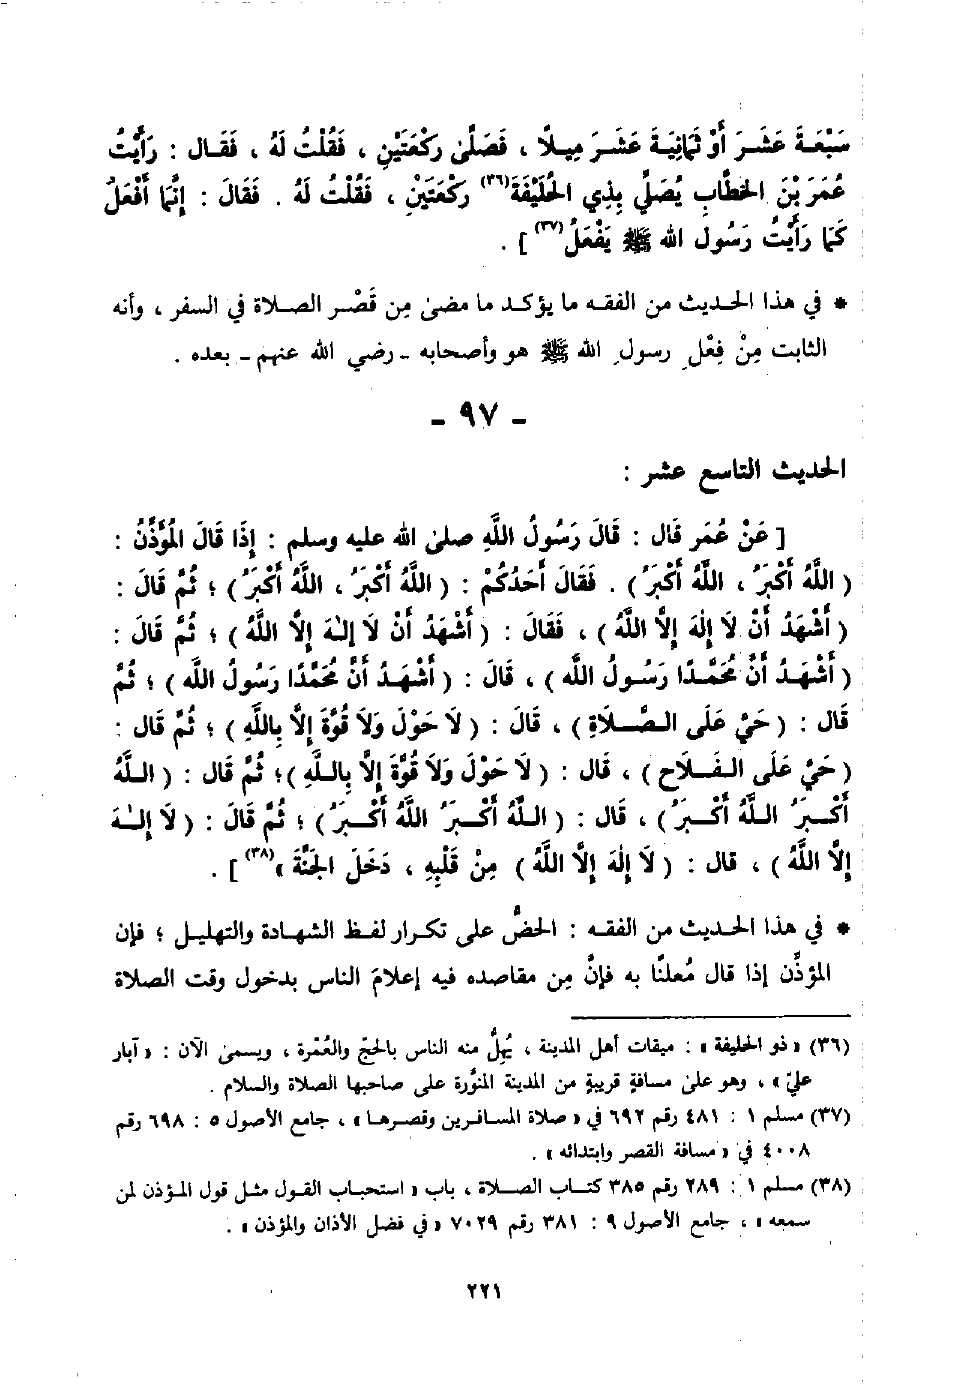 سَبْعَةَ عَشَرَ أَوْ ثَمَانِيَةَ عَشَرَ مِيلًا ، فَصَلَّىٰ رَكْعَتَيْنِ ، فَقُلْتُ لَهُ ، فَقَال : رَأَيْتُ
عُمَرَ بْنَ الخطَّابِ يُصَلِّي بِذِي الحُلَيْفَةَ (٣٦) رَكْعَتَيْنِ ، فَقُلْتُ لَهُ . فَقَالَ : إِنَّمَا أَفْعَلُ
كَمَا رَأَيْتُ رَسُولَ الله ﷺ يَفْعَلُ (٣٧) ] .
* في هذا الحديث من الفقه ما يؤكد ما مضىٰ مِن قَصْر الصلاة في السفر ، وأنه
الثابت مِنْ فِعْلِ رسولِ الله ﷺ هو وأصحابه - رضي الله عنهم - بعده .
- ٩٧ -
الحديث التاسع عشر :
[ عَنْ عُمَر قَال : قَالَ رَسُولُ اللَّهِ صلىٰ الله عليه وسلم : إِذَا قَالَ المُؤَذِّنُ :
( اللَّهُ أَكْبَرُ ، اللَّهُ أَكْبَرُ ) . فَقَالَ أَحَدُكُمْ : ( اللَّهُ أَكْبَرُ ، اللَّهُ أَكْبَرُ ) ؛ ثُمَّ قَالَ :
( أَشْهَدُ أَنْ لَا إِلٰهَ إِلَّا اللَّهُ ) ، فَقَالَ : ( أَشْهَدُ أَنْ لَا إِلٰهَ إِلَّا اللَّهُ ) ؛ ثُمَّ قَالَ :
( أَشْهَدُ أَنَّ مُحَمَّدًا رَسُولُ اللَّه ) ، قَالَ : ( أَشْهَدُ أَنَّ مُحَمَّدًا رَسُولُ اللَّه ) ؛ ثُمَّ
قَال : ( حَيَّ عَلَى الصَّلَاةِ ) ، قَالَ : ( لَا حَوْلَ وَلَا قُوَّةَ إِلَّا بِاللَّهِ ) ؛ ثُمَّ قَال :
( حَيَّ عَلَى الفَلَاح ) ، قَال : ( لَا حَوْلَ وَلَا قُوَّةَ إِلَّا بِاللَّهِ ) ؛ ثُمَّ قَال : ( اللَّهُ
أَكْبَرُ اللَّهُ أَكْبَرُ ) ، قَال : ( اللَّهُ أَكْبَرُ اللَّهُ أَكْبَرُ ) ؛ ثُمَّ قَالَ : ( لَا إِلٰهَ
إِلَّا اللَّهُ ) ، قال : ( لَا إِلٰهَ إِلَّا اللَّهُ ) مِنْ قَلْبِهِ ، دَخَلَ الجَنَّةَ » (٣٨) ] .
* في هذا الحديث من الفقه : الحضُّ على تكرار لفظ الشهادة والتهليل ؛ فإن
المؤذِّن إذا قال مُعلنًا به فإنَّ مِن مقاصده فيه إعلامَ الناس بدخول وقت الصلاة
(٣٦) « ذو الحليفة » : ميقات أهل المدينة ، يُهِلُّ منه الناس بالحجّ والعُمْرة ، ويسمى الآن : « آبار
عليّ » ، وهو علىٰ مسافةٍ قريبةٍ من المدينة المنوَّرة على صاحبها الصلاة والسلام .
(٣٧) مسلم ١ : ٤٨١ رقم ٦٩٢ في « صلاة المسافرين وقصرها » ، جامع الأصول ٥ : ٦٩٨ رقم
٤٠٠٨ في « مسافة القصر وابتدائه » .
(٣٨) مسلم ١ : ٢٨٩ رقم ٣٨٥ كتاب الصلاة ، باب « استحباب القول مثل قول المؤذن لمن
سمعه » ، جامع الأصول ٩ : ٣٨١ رقم ٧٠٢٩ « في فضل الأذان والمؤذن » .
٢٢١